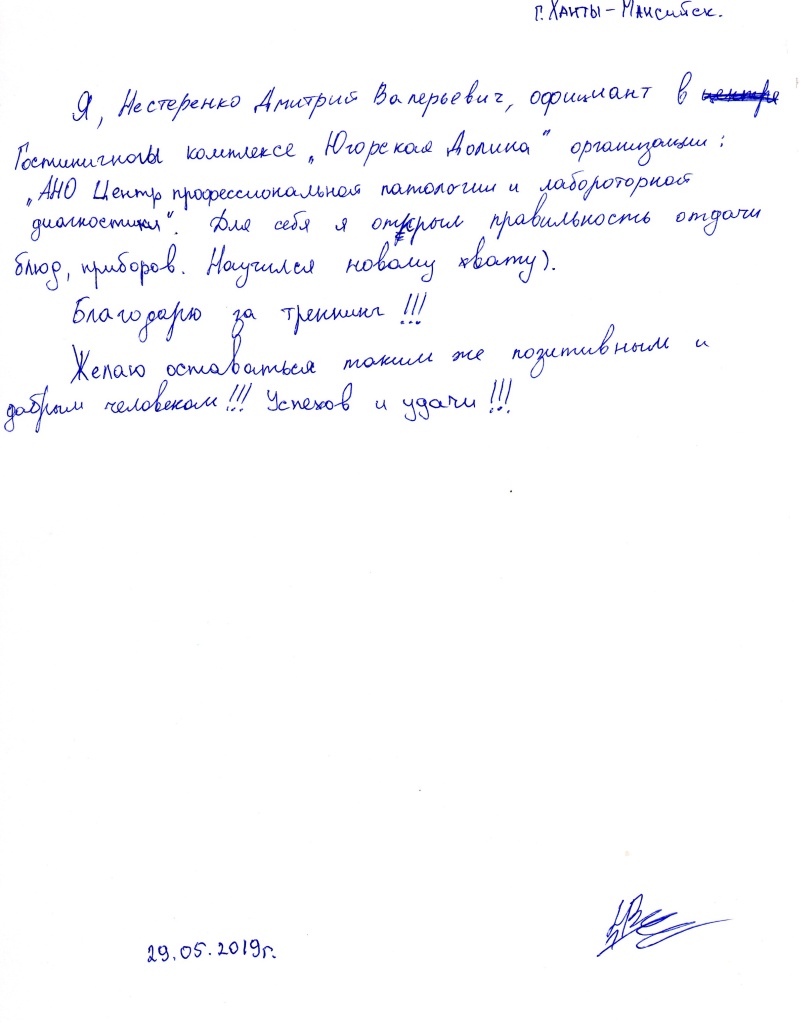 г. Ханты-Мансийск.
Я, Нестеренко Дмитрий Валерьевич, официант в центре
Гостиничном комплексе „Югорская Долина" организации:
„АНО Центр профессиональной патологии и лабороторной
диагностики". Для себя я открыл правильность отдачи
блюд, приборов. Научился новому хвату).
Благодарю за треннинг!!!
Желаю оставаться таким же позитивным и
добрым человеком!!! Успехов и удачи!!!
29.05.2019г.